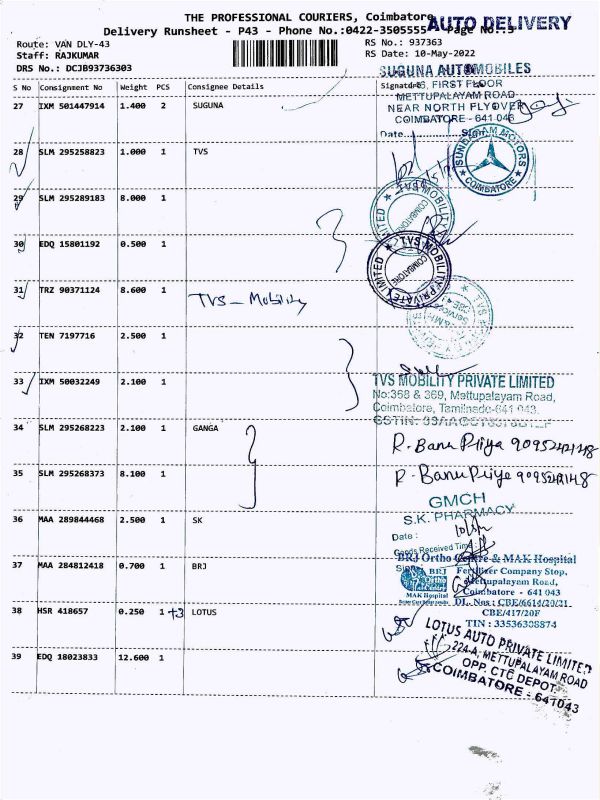 THE PROFESSIONAL COURIERS, Coimbatore
AUTO DELIVERY
Delivery Runsheet - P43 - Phone No.:0422-3505555 Page No.:3
Route: VAN DLY-43
RS No.: 937363
Staff: RAJKUMAR
RS Date: 10-May-2022
DRS No.: DCJB93736303
SUGUNA AUTOMOBILES
S No Consignment No Weight PCS Consignee Details Signature
FIRST FLOOR
METTUPALAYAM ROAD
NEAR NORTH FLYOVER
COIMBATORE - 641 046
Date
27 IXM 501447914 1.400 2 SUGUNA
28 SLM 295258823 1.000 1 TVS
SUNDARAM MOTORS
COIMBATORE
29 SLM 295289183 8.000 1
TVS MOBILITY
LIMITED
COIMBATORE
30 EDQ 15801192 0.500 1
TVS MOBILITY PRIVATE LIMITED
COIMBATORE
31 TRZ 90371124 8.600 1 TVS - Mobility
32 TEN 7197716 2.500 1
33 IXM 50032249 2.100 1
TVS MOBILITY PRIVATE LIMITED
No:368 & 369, Mettupalayam Road,
Coimbatore, Tamilnadu-641 043.
34 SLM 295268223 2.100 1 GANGA
R. Banu Priya 9095242148
35 SLM 295268373 8.100 1
R. Banu Priya 9095242148
GMCH
S.K. PHARMACY
36 MAA 289844468 2.500 1 SK
Date :
Goods Received Time
BRJ Ortho Centre & MAK Hospital
37 MAA 284812418 0.700 1 BRJ
BRJ Ortho Centre
MAK Hospital
Fertilizer Company Stop,
Mettupalayam Road,
Coimbatore - 641 043
DL. Nos : CBE/6614/20/21
CBE/417/20F
TIN : 33536308874
38 HSR 418657 0.250 1 +3 LOTUS
LOTUS AUTO PRIVATE LIMITED
224-A, METTUPALAYAM ROAD
OPP. CTC DEPOT
COIMBATORE - 641043
39 EDQ 18023833 12.600 1